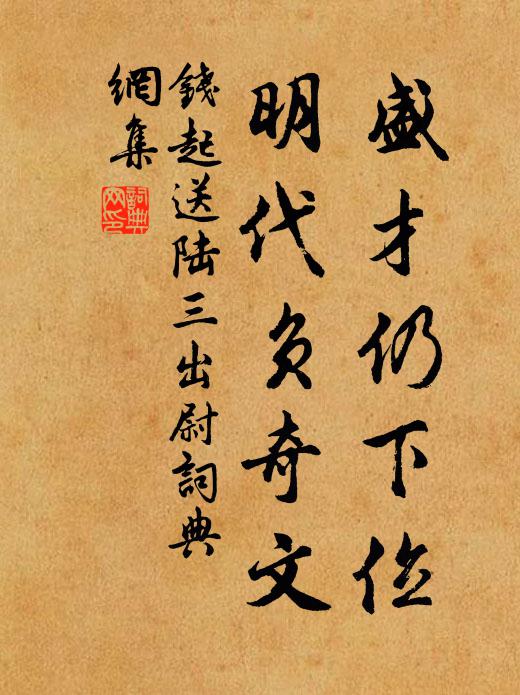 盛才仍下位
明代负奇文
錢起送陆三出尉詞典
網集
詞典网印